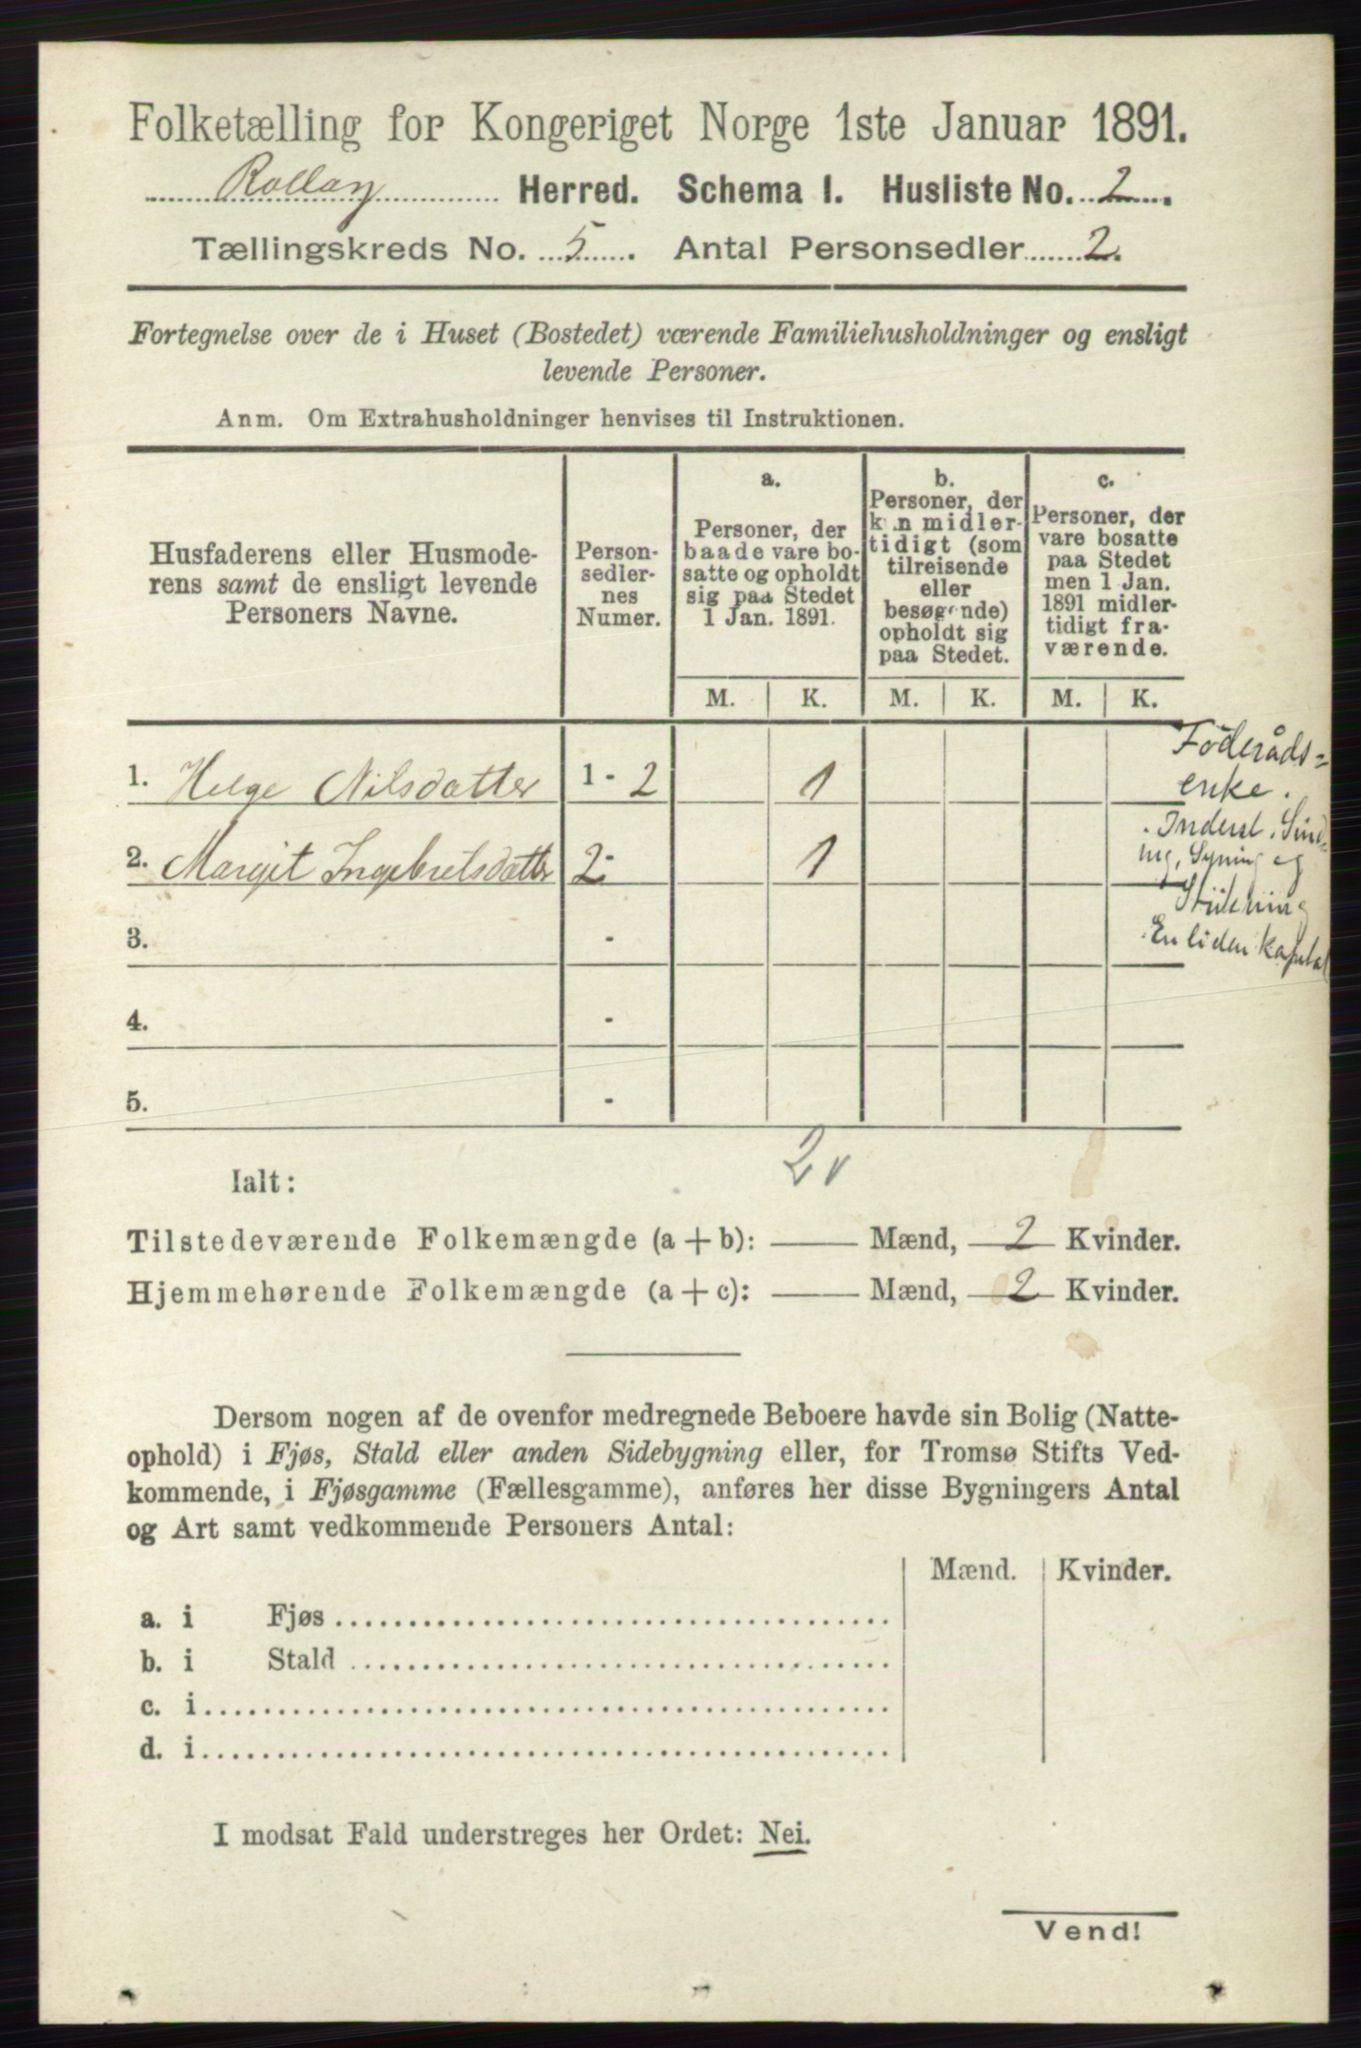 Folketælling for Kongeriget Norge 1ste Januar 1891.
Rollag Herred. Schema I. Husliste No. 2.
Tællingskreds No. 5. Antal Personsedler 2.
Fortegnelse over de i Huset (Bostedet) værende Familiehusholdninger og ensligt
levende Personer.
Anm. Om Extrahusholdninger henvises til Instruktionen.
Husfaderens eller Husmode-
rens samt de ensligt levende
Personers Navne.
Person-
sedler-
nes
Numer.
a.
Personer, der
baade vare bo-
satte og opholdt
sig paa Stedet
1 Jan. 1891.
b.
Personer, der
kun midler-
tidigt (som
tilreisende
eller
besøgende)
opholdt sig
paa Stedet.
c.
Personer, der
vare bosatte
paa Stedet
men 1 Jan.
1891 midler-
tidigt fra-
værende.
M. K. M. K. M. K.
1. Helge Nilsdatter 1 - 2 1
Föderåds=
enke.
2. Margit Ingebretsdatter 2- 1
Inderst. Sind
ing, Syning og
3. -
En liden kapital
4. -
5. -
2 v
Ialt:
Tilstedeværende Folkemængde (a + b): — Mænd, 2 Kvinder.
Hjemmehørende Folkemængde (a + c): — Mænd, 2 Kvinder.
Dersom nogen af de ovenfor medregnede Beboere havde sin Bolig (Natte-
ophold) i Fjøs, Stald eller anden Sidebygning eller, for Tromsø Stifts Ved-
kommende, i Fjøsgamme (Fællesgamme), anføres her disse Bygningers Antal
og Art samt vedkommende Personers Antal:
Mænd. Kvinder.
a. i Fjøs
b. i Stald
c. i
d. i
I modsat Fald understreges her Ordet: Nei.
Vend!